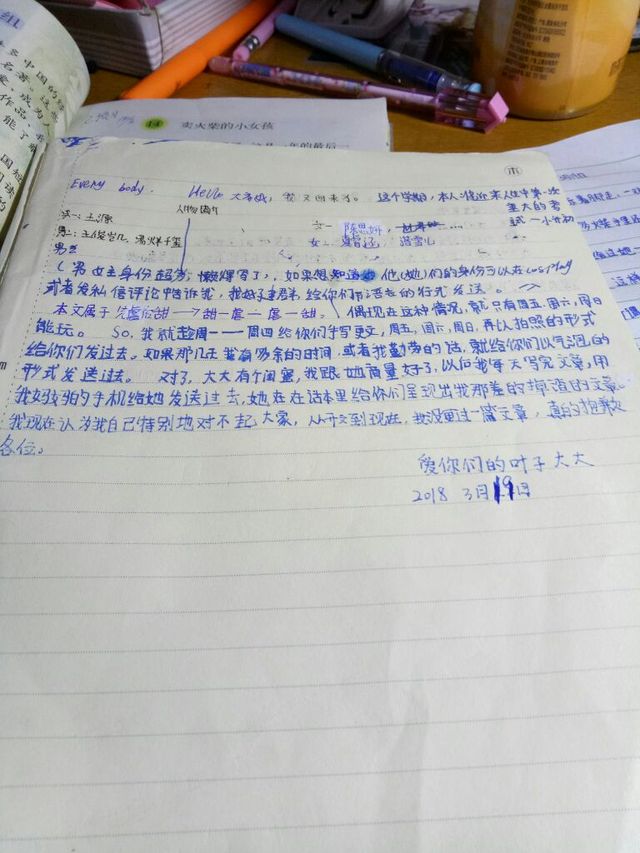 组
卖火柴的小女孩
Every body. Hello 大家好，我又回来了。这个学期，本人临近来人生中第一次
重大的考
试—小升初
人物简介
男一：王源
女一 陈思妍
男二：王俊凯，易烊千玺
（男女主身份超多，懒得写了，如果想知道他(她)们的身份可以在cosplay
或者发私信评论中告诉我，我好建群来给你们
本文属于先虐后甜→甜一虐一虐一甜。）偶现在这种情况，就只有周五，周六，周日
能玩。So，我就趁周一——周四给你们手写更文，周五，周六，周日，再以拍照的形式
给你们发过去。如果那几天我有多余的时间，或者我勤劳的话，就给你们以气泡的
形式发送过去。对了，大大有个闺蜜，我跟她商量好了，以后我每天写完文章，用
我妈妈的手机给她发送过去，她在在话本里给你们呈现出我那差的掉渣的文章。
我现在认为我自己特别地对不起大家，从开文到现在，我没更过一篇文章，真的抱歉
各位。
爱你们的叶子大大
2018 3月19日